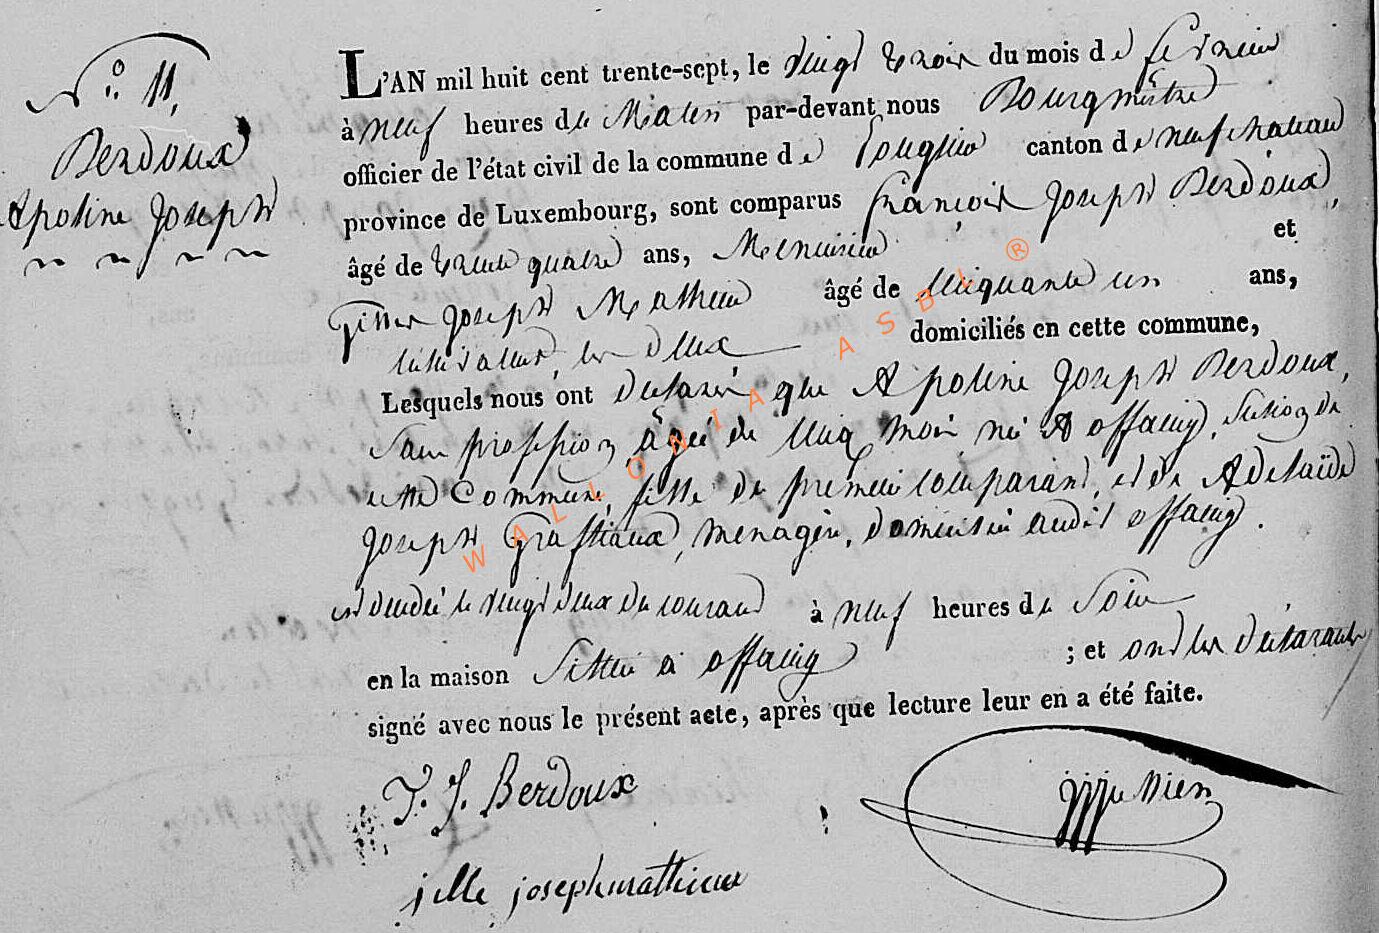 N° 11.
Berdoux
Apoline Joseph
L'AN mil huit cent trente-sept, le vingt trois du mois de fevrier
à neuf heures du Matin par-devant nous Bourgmêstre
officier de l'état civil de la commune de Longlier canton de neufchateau
province de Luxembourg, sont comparus françois Joseph Berdoux,
âgé de trente quatre ans, Menuisier et
Gille Joseph Mathieu âgé de cinquante un ans,
cultivateur, les deux domiciliés en cette commune,
Lesquels nous ont declaré que Apoline Joseph Berdoux,
sans profession, âgée de cinq mois né A offaing, section de
cette Commune, fille du premier comparant, et de Adelaïde
Joseph Graftiaux, menagère, domicilié audit offaing.
est decedé le vingt deux du courant à neuf heures du Soir
en la maison sittué à offaing ; et ont les déclarants
signé avec nous le présent acte, après que lecture leur en a été faite.
F. J. Berdoux
jille joseph mathieux
WALLONIA ASBL ®